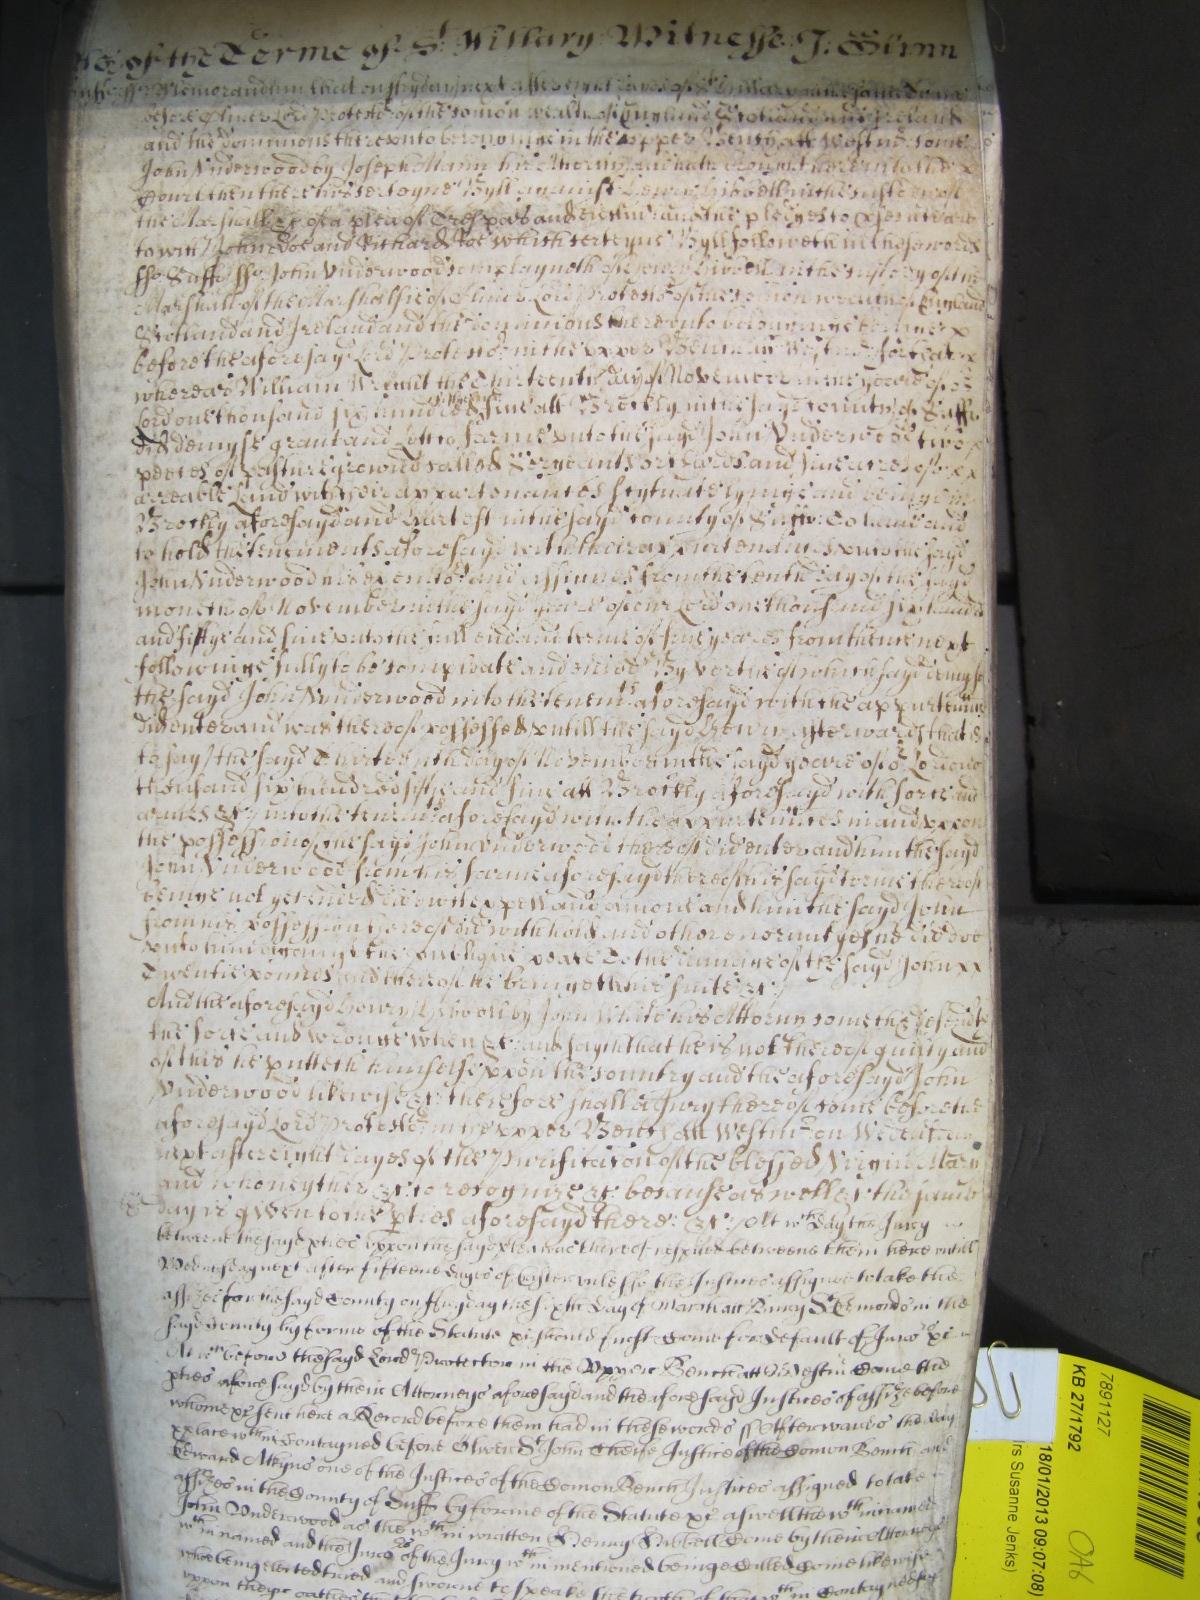 of the Terme of St Hillary Witnesse J. Glynn
Memorandum that on ffryday next after eight dayes of St Hillary
before Oliver Lord Protector of the comon wealth of England Scotland and Ireland
and the dominions thereunto belonginge in the upper Bench att Westmr come
John Underwood by Joseph Mann his Attorny and hath brought here into the
Court then there his certayne Byll against Henry in the custody of
the Marshall &c of a plea of Trespas and eiectmt and the pledges to prosecute are
to witt John Doe and Richard Roe which certeyne Byll followeth in these words
ss Suff ss John Underwood complayneth of Henry in the custody of the
Marshall of the Marshalsie of Oliver Lord Protector of the comon wealth of England
Scotland and Ireland and the dominions thereunto belonginge beinge
before the aforesayd Lord Protector in the upper Bench att Westmr for that
whereas William Wright the Thirteenth day of November in the yeare of or
Lord one thousand six hundred five att Brockly in the sayd county of Suff
did demyse graunt and to farme unto the sayd John Underwood two
peeces of pasture ground called Sergeants and five acres of
arreable Land with their appurtenances scytuate lyinge and beinge in
Brockly aforesayd and Hartest in the sayd county of Suff To have and
to hold the tenements aforesayd with their appurtenances unto the sayd
John Underwood his executors and assignes from the tenth day of the sayd
moneth of November in the sayd yeare of our Lord one thousand six hundred
and fiftye and five unto the full end and terme of five yeares from thence next
followinge fully to be compleate and ended By vertue of which sayd demyse
the sayd John Underwood into the tenemts aforesayd with the appurtennces
did enter and was thereof possessed untill the sayd Henry afterwards that is
to say the sayd Thirteenth day of November in the sayd yeare of or Lord one
thousand six hundred fiftie and five att Brockly aforesayd with force and
armes &c into the tenemts aforesayd with the appurtennces in and uppon
the possession of the sayd John Underwood thereof did enter and him the sayd
John Underwood from his farme aforesayd thereof his sayd terme thereof
beinge not yet ended did expell and amove and him the sayd John
from his possession thereof did withhold and other enormityes he did doe
unto him against the publique peace To the damage of the sayd John
Twentie pounds and thereof he bringeth his suite &c
And the aforesayd Henry by John White his Attorny come the defende
the force and wronge when &c and sayth that he is not thereof guilty and
of this he putteth himselfe upon the country and the aforesayd John
Underwood likewise &c therefore shall a Jury thereof come before the
aforesayd Lord Protector in the upper Bench att Westmr on Wednesday
next after eight dayes of the Purificacon of the blessed Virgin Mary
and who neyther &c to recognize &c because as well &c the same
day is given to the pties aforesayd there &c Att wch day the Jury
betweene the sayd pties uppon the sayd plea was thereof respited betweene them here untill
Wednesday next after fifteene dayes of Easter unlesse the Justices assigned to take the
assizes for the sayd County on ffryday the sixth day of March att Bury St Edmonds in the
sayd County by forme of the Statute &c should first Come for default of Juro &c
Att wch before the sayd Lord Protector in the Upper Bench att Westmr Come the
pties aforesayd by their Attorneys aforesayd and the aforesayd Justices of assize before
whome &c sent here a Record before them had in these words ss Afterwards the day
place wthin Contayned before Oliver St John Cheife Justice of the Comon Bench and
Edward Atkyns one of the Justices of the Comon Bench Justices assigned to take
assizes in the County of Suff by forme of the Statute &c aswell the wthin named
John Underwood as the wthin written Henry Come by their Attorneys
wthin named and the Juro of the Jury wthin mentioned beinge Called Come likewise
who beinge elected tried and sworne to speake the truth of the wthin Contayned
uppon their oathes
7891127
KB 271792
18/01/2013 09:07:08)
rs Susanne Jenks)
OA6